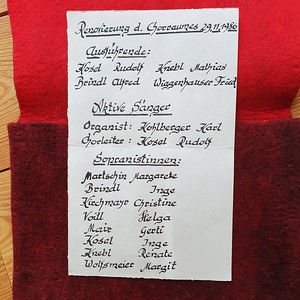 Renovierung d. Chorraumes 29.11.1980
Ausführende:
Kosel Rudolf Knebl Mathias
Brindl Alfred Wiggenhauser Fried
Aktive Sänger
Organist: Kohlberger Karl
Chorleiter: Kosel Rudolf
Sopranistinnen:
Martschin Margarete
Brindl Inge
Kirchmayr Christine
Voill Helga
Mair Gerti
Kosel Inge
Knebl Renate
Wolfsmeier Margit